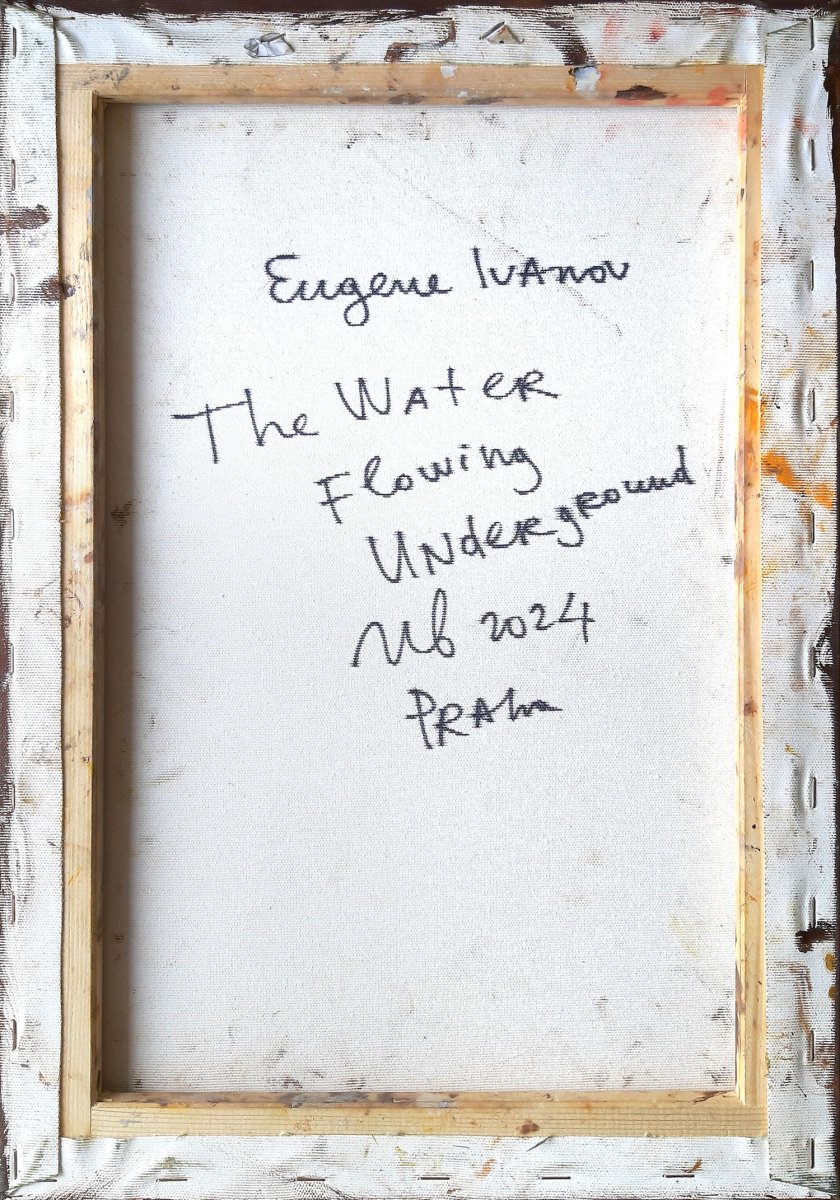 Eugene Ivanov
The Water
Flowing
Underground
2024
Praha